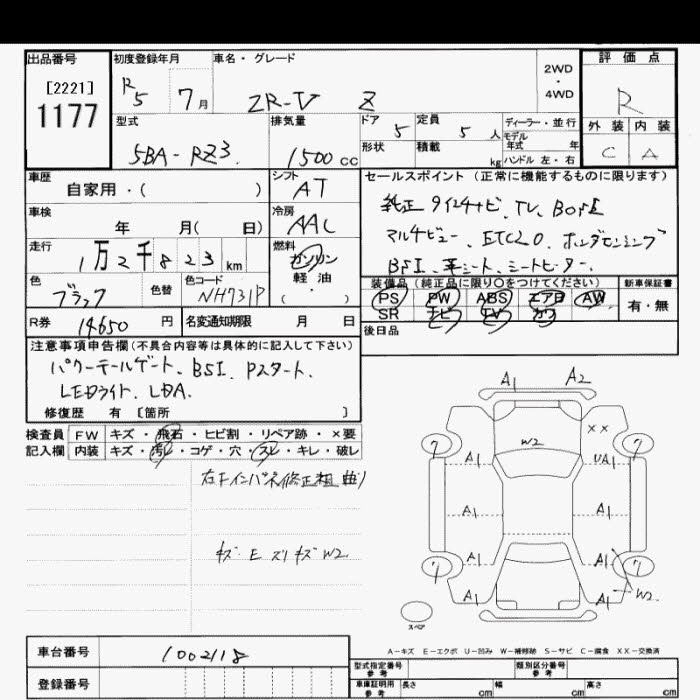 出品番号
[2221]
1177
初度登録年月
R5 7月
車名・グレード
ZR-V Z
2WD
・
4WD
評価点
R
外装 内装
C A
型式
5BA-RZ3
排気量
1500cc
ドア 5
定員 5人
ディーラー・並行
モデル
年式 年
形状
積載 kg
ハンドル 左・右
車歴
自家用・( )
シフト
AT
車検
年 月( 日)
冷房
AAC
走行
1万2千823km
燃料
ガソリン
軽・油
( ・ )
色
ブラック
色替
色コード
NH731P
R券 14650円
名変通知期限 月 日
セールスポイント (正常に機能するものに限ります)
純正9インチナビ、TV、BOSE
マルチビュー、ETC2.0、ホンダセンシング
BSI、革シート、シートヒーター、
装備品(純正品に限り○をつけてください)
PS PW ABS エアB AW
SR ナビ TV カワ
新車保証書
有・無
後日品
注意事項申告欄(不具合内容等は具体的に記入して下さい)
パワーテールゲート、BSI、Pスタート、
LEDライト、LDA、
修復歴 有 [箇所 ]
検査員
記入欄
FW キズ・飛石・ヒビ割・リペア跡・×要
内装 キズ・汚レ・コゲ・穴・スレ・キレ・破レ
右Fインパネ修正粗 曲り
キズ E スリキズ W2
A1 A2
W2
××
7 7
A1 UA1
A1 A1
A1 A1
7 7
A1 A1 W2
スペア
A-キズ E-エクボ U-凹み W-補修跡 S-サビ C-腐食 XX-交換済
車台番号
1002118
登録番号
型式指定番号
参考
類別区分番号
参考
車庫証明用
参考
長さ cm 幅 cm 高さ cm